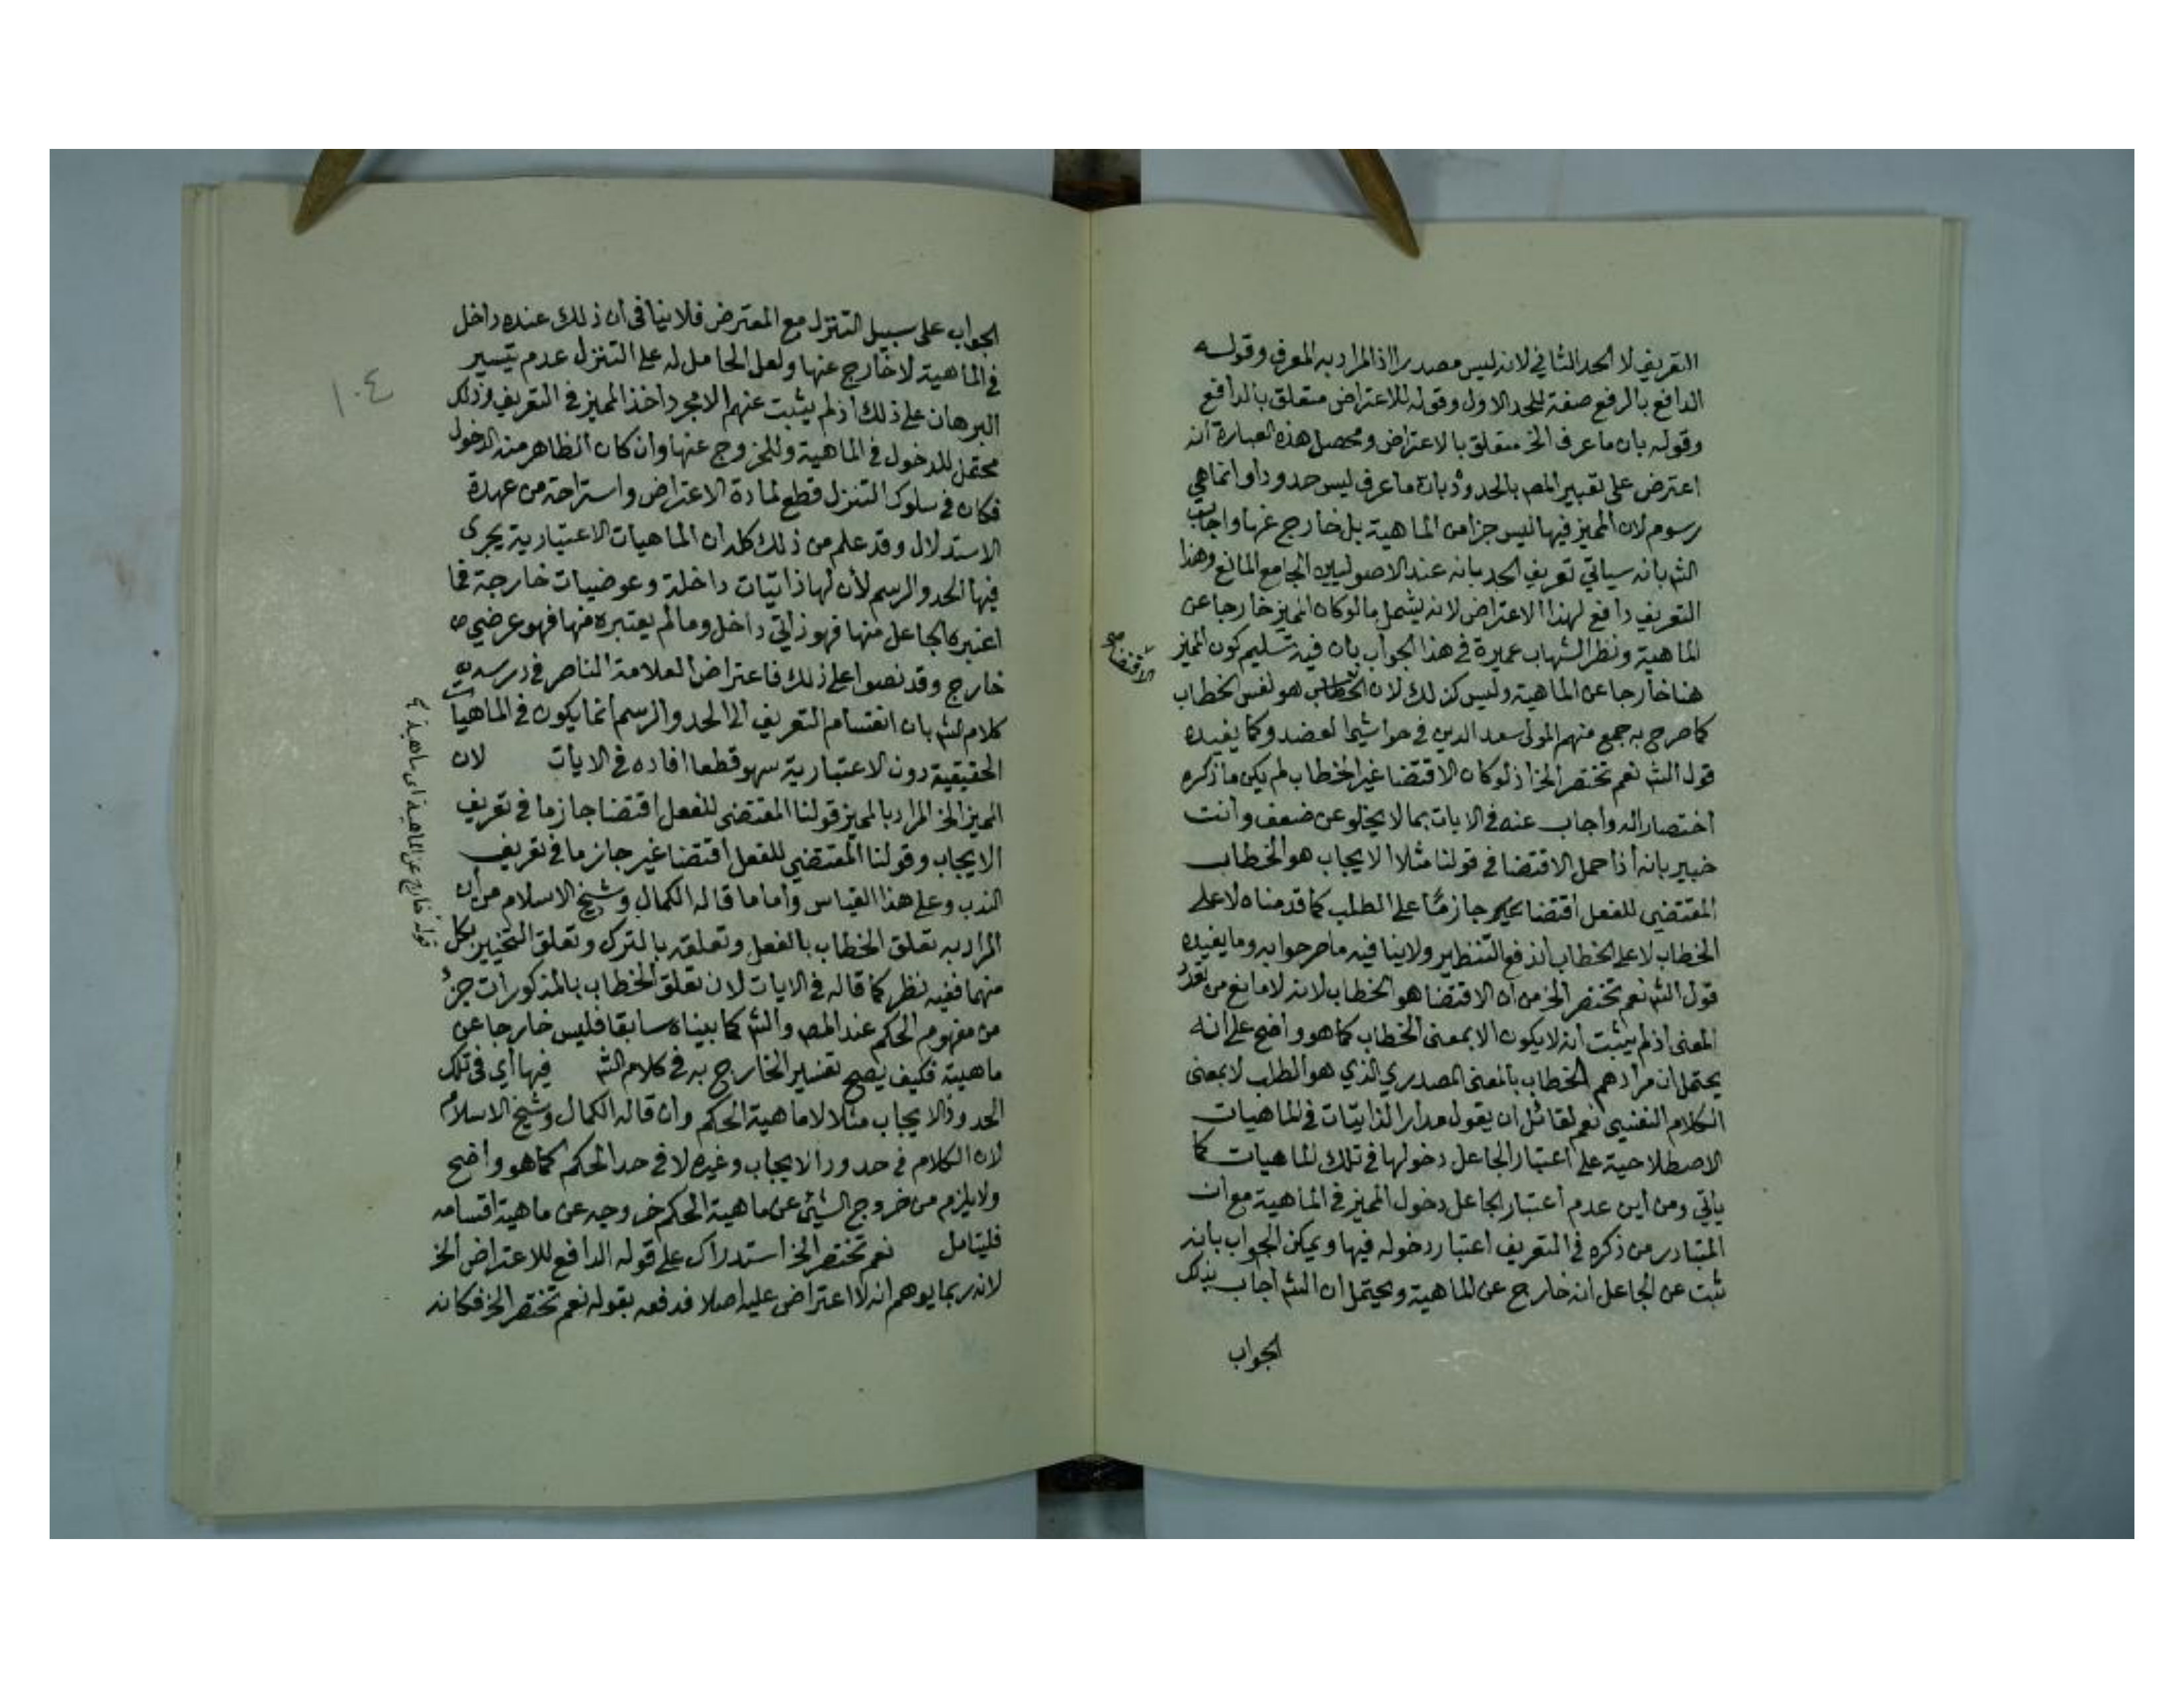 التعريف لا الحد الثاني لانه ليس مصدرا اذ المراد به المعرف وقوله
الدافع بالرفع صفة للحد الاول وقوله للاعتراض متعلق بالدافع
وقوله بان ما عرف الخ متعلق بالاعتراض ومحصل هذه العبارة انه
اعترض على تعبير المص بالحدود بان ما عرف ليس حدودا وانما هي
رسوم لان المميز فيها ليس جزا من الماهية بل خارج عنها واجاب
الش بانه سياتي تعريف الحد بانه عند الاصوليين الجامع المانع وهذا
التعريف دافع لهذا الاعتراض لانه يشمل ما لو كان المميز خارجا عن
الماهية ونظر الشهاب عميرة في هذا الجواب بان فيه تسليم كون المميز
هنا خارجا عن الماهية وليس كذلك لان هو نفس الخطاب
الاقتضا صح
كما صرح به جمع منهم المولى سعد الدين في حواشي العضد وكما يفيده
قول الش نعم تختصر الخ اذ لو كان الاقتضا غير الخطاب لم يكن ما ذكره
اختصارا له واجاب عنه في الايات بما لا يخلو عن ضعف وانت
خبير بانه اذا حمل الاقتضا في قولنا مثلا الايجاب هو الخطاب
المقتضي للفعل اقتضا جازما على الطلب كما قدمناه لا على
الخطاب لا على الخطاب اندفع التنظير ولا ينافيه ما صرحوا به وما يفيده
قول الش نعم تختصر الخ من ان الاقتضا هو الخطاب لانه لا مانع من تعدد
المعنى اذ لم يثبت انه لا يكون الا بمعنى الخطاب كما هو واضح على انه
يحتمل ان مرادهم الخطاب بالمعنى المصدري الذي هو الطلب لا بمعنى
الكلام النفسي نعم لقائل ان يقول مدار الذاتيات في الماهيات
الاصطلاحية على اعتبار الجاعل دخولها في تلك الماهيات كما
ياتي ومن اين عدم اعتبار الجاعل دخول المميز في الماهية مع ان
المتبادر من ذكره في التعريف اعتبار دخوله فيها ويمكن الجواب بانه
ثبت عن الجاعل انه خارج عن الماهية ويحتمل ان الش اجاب بذلك
الجواب
١٠٤
الجواب على سبيل التنزل مع المعترض فلا ينافي ان ذلك عنده داخل
في الماهية لا خارج عنها ولعل الحامل له على التنزل عدم تيسير
البرهان على ذلك اذ لم يثبت عنهم الا مجرد اخذ المميز في التعريف وذلك
محتمل للدخول في الماهية وللخروج عنها وان كان الظاهر منه الدخول
فكان في سلوك التنزل قطع لمادة الاعتراض واستراحة من عهدة
الاستدلال وقد علم من ذلك كله ان الماهيات الاعتبارية يجرى
فيها الحد والرسم لأن لها ذاتيات داخلة وعوضيات خارجة فما
اعتبره الجاعل منها فهو ذاتي داخل وما لم يعتبره منها فهو عرضي
خارج وقد نصوا على ذلك فاعتراض العلامة الناصر في درسه
كلام الش بان انقسام التعريف الى الحد والرسم انما يكون في الماهيات
الحقيقية دون الاعتبارية سهو قطعا افاده في الايات لان
المميز الخ المراد بالمميز قولنا المقتضى للفعل اقتضا جازما في تعريف
الايجاب وقولنا المقتضي للفعل اقتضا غير جازما في تعريف
الندب وعلى هذا القياس واما ما قاله الكمال وشيخ الاسلام من أن
المراد به تعلق الخطاب بالفعل وتعلقه بالترك وتعلق التخيير بكل
منهما ففيه نظر كما قاله في الايات لان تعلق الخطاب بالمذكورات جزء
من مفهوم الحكم عند المص والش كما بيناه سابقا فليس خارجا عن
ماهيته فكيف يصح تفسير الخارج به في كلام الش فيها أي في تلك
الحدود الايجاب مثلا لا ماهية الحكم وان قاله الكمال وشيخ الاسلام
لان الكلام في حدود الايجاب وغيره لا في حد الحكم كما هو واضح
ولا يلزم من خروج الشيئ عن ماهية الحكم خروجه عن ماهية اقسامه
فليتامل نعم تختصر الخ استدراك على قوله الدافع للاعتراض الخ
لانه ربما يوهم انه لا اعتراض عليه اصلا فدفعه بقوله نعم تختصر الخ فكانه
قوله خارج عن الماهية اى ماهية